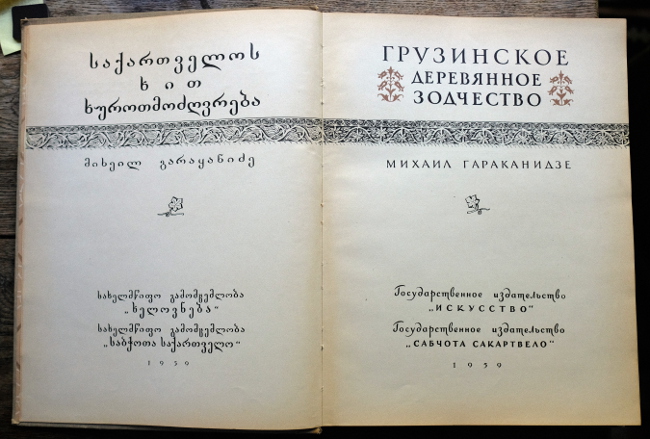 საქართველოს
ხით
ხუროთმოძღვრება
მიხეილ გარაყანიძე
სახელმწიფო გამომცემლობა
„ხელოვნება“
სახელმწიფო გამომცემლობა
„საბჭოთა საქართველო“
1959
ГРУЗИНСКОЕ
ДЕРЕВЯННОЕ
ЗОДЧЕСТВО
МИХАИЛ ГАРАКАНИДЗЕ
Государственное издательство
„ИСКУССТВО“
Государственное издательство
„САБЧОТА САКАРТВЕЛО“
1959